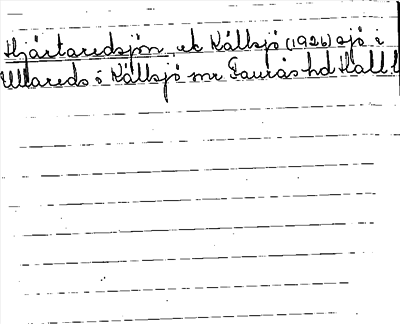 Hjärtaredsjön, ek Källsjö (1926) sjö i
Ullareds o Källsjö snr Faurås hd Hall. l